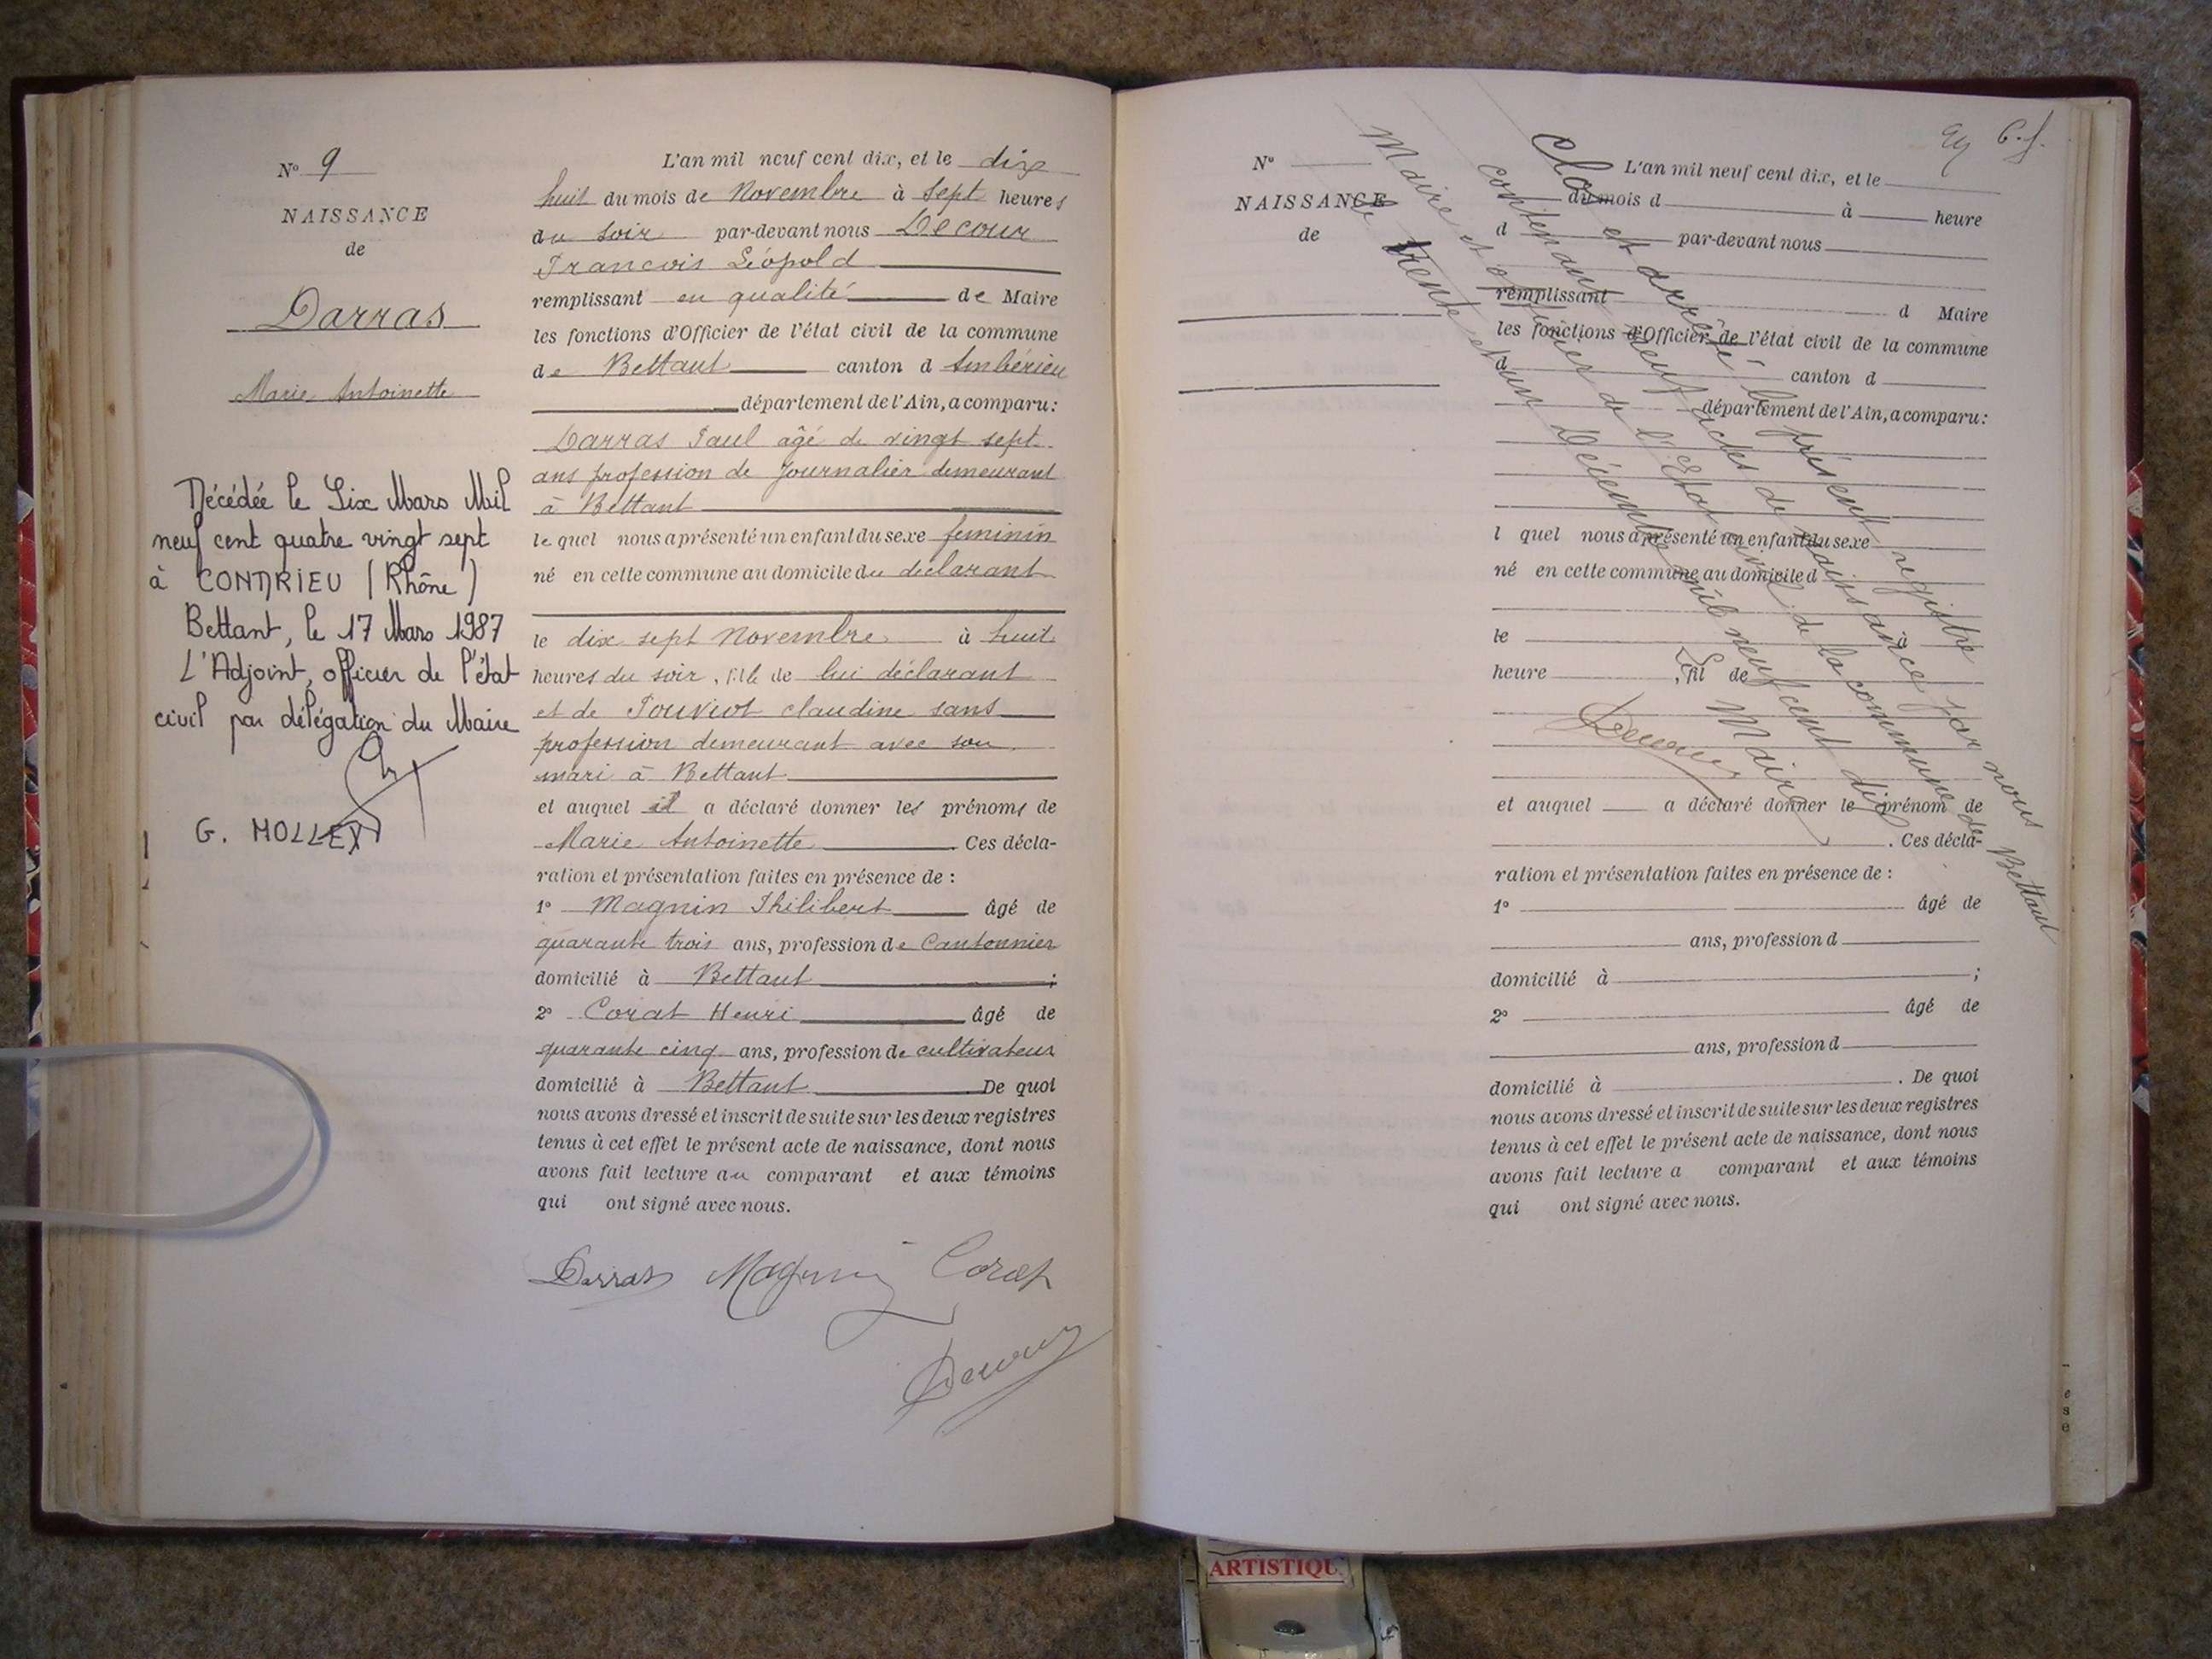 N° 9
NAISSANCE
de
Darras
Marie Antoinette
Décédée le Six Mars Mil
neuf cent quatre vingt sept
à CONDRIEU (Rhône)
Bettant, le 17 Mars 1987
L'Adjoint, officier de l'état
civil par délégation du Maire
G. MOLLEX
L'an mil neuf cent dix, et le dix
huit du mois de Novembre à sept heures
du soir par-devant nous Decour
Francois Léopold
remplissant en qualité de Maire
les fonctions d'Officier de l'état civil de la commune
de Bettant canton d Ambérieu
département de l'Ain, a comparu:
Darras Paul âgé de vingt sept
ans profession de Journalier demeurant
à Bettant
le quel nous a présenté un enfant du sexe feminin
né en cette commune au domicile du déclarant
le dix sept Novembre à huit
heures du soir, fille de lui déclarant
et de Pouveot claudine sans
profession demeurant avec son
mari à Bettant
et auquel il a déclaré donner les prénoms de
Marie Antoinette Ces décla-
ration et présentation faites en présence de :
1° Magnin Philibert âgé de
quarante trois ans, profession de Cantonnier
domicilié à Bettant ;
2° Corat Henri âgé de
quarante cinq ans, profession de cultivateur
domicilié à Bettant De quoi
nous avons dressé et inscrit de suite sur les deux registres
tenus à cet effet le présent acte de naissance, dont nous
avons fait lecture au comparant et aux témoins
qui ont signé avec nous.
Darras Magnin Corat
Decour
N°
NAISSANCE
de
L'an mil neuf cent dix, et le
du mois d à heure
d par-devant nous
remplissant d Maire
les fonctions d'Officier de l'état civil de la commune
d canton d
département de l'Ain, a comparu:
l quel nous a présenté un enfant du sexe
né en cette commune au domicile d
le à
heure , fil de
et auquel a déclaré donner le prénom de
. Ces décla-
ration et présentation faites en présence de :
1° âgé de
ans, profession d
domicilié à ;
2° âgé de
ans, profession d
domicilié à . De quoi
nous avons dressé et inscrit de suite sur les deux registres
tenus à cet effet le présent acte de naissance, dont nous
avons fait lecture a comparant et aux témoins
qui ont signé avec nous.
Clos et arrêté le présent registre par nous
contenant neuf actes de naissance
Maire et officier de l'Etat civil de la commune de Bettant
le trente et un Décembre mil neuf cent dix
Le Maire
Decour
ARTISTIQU